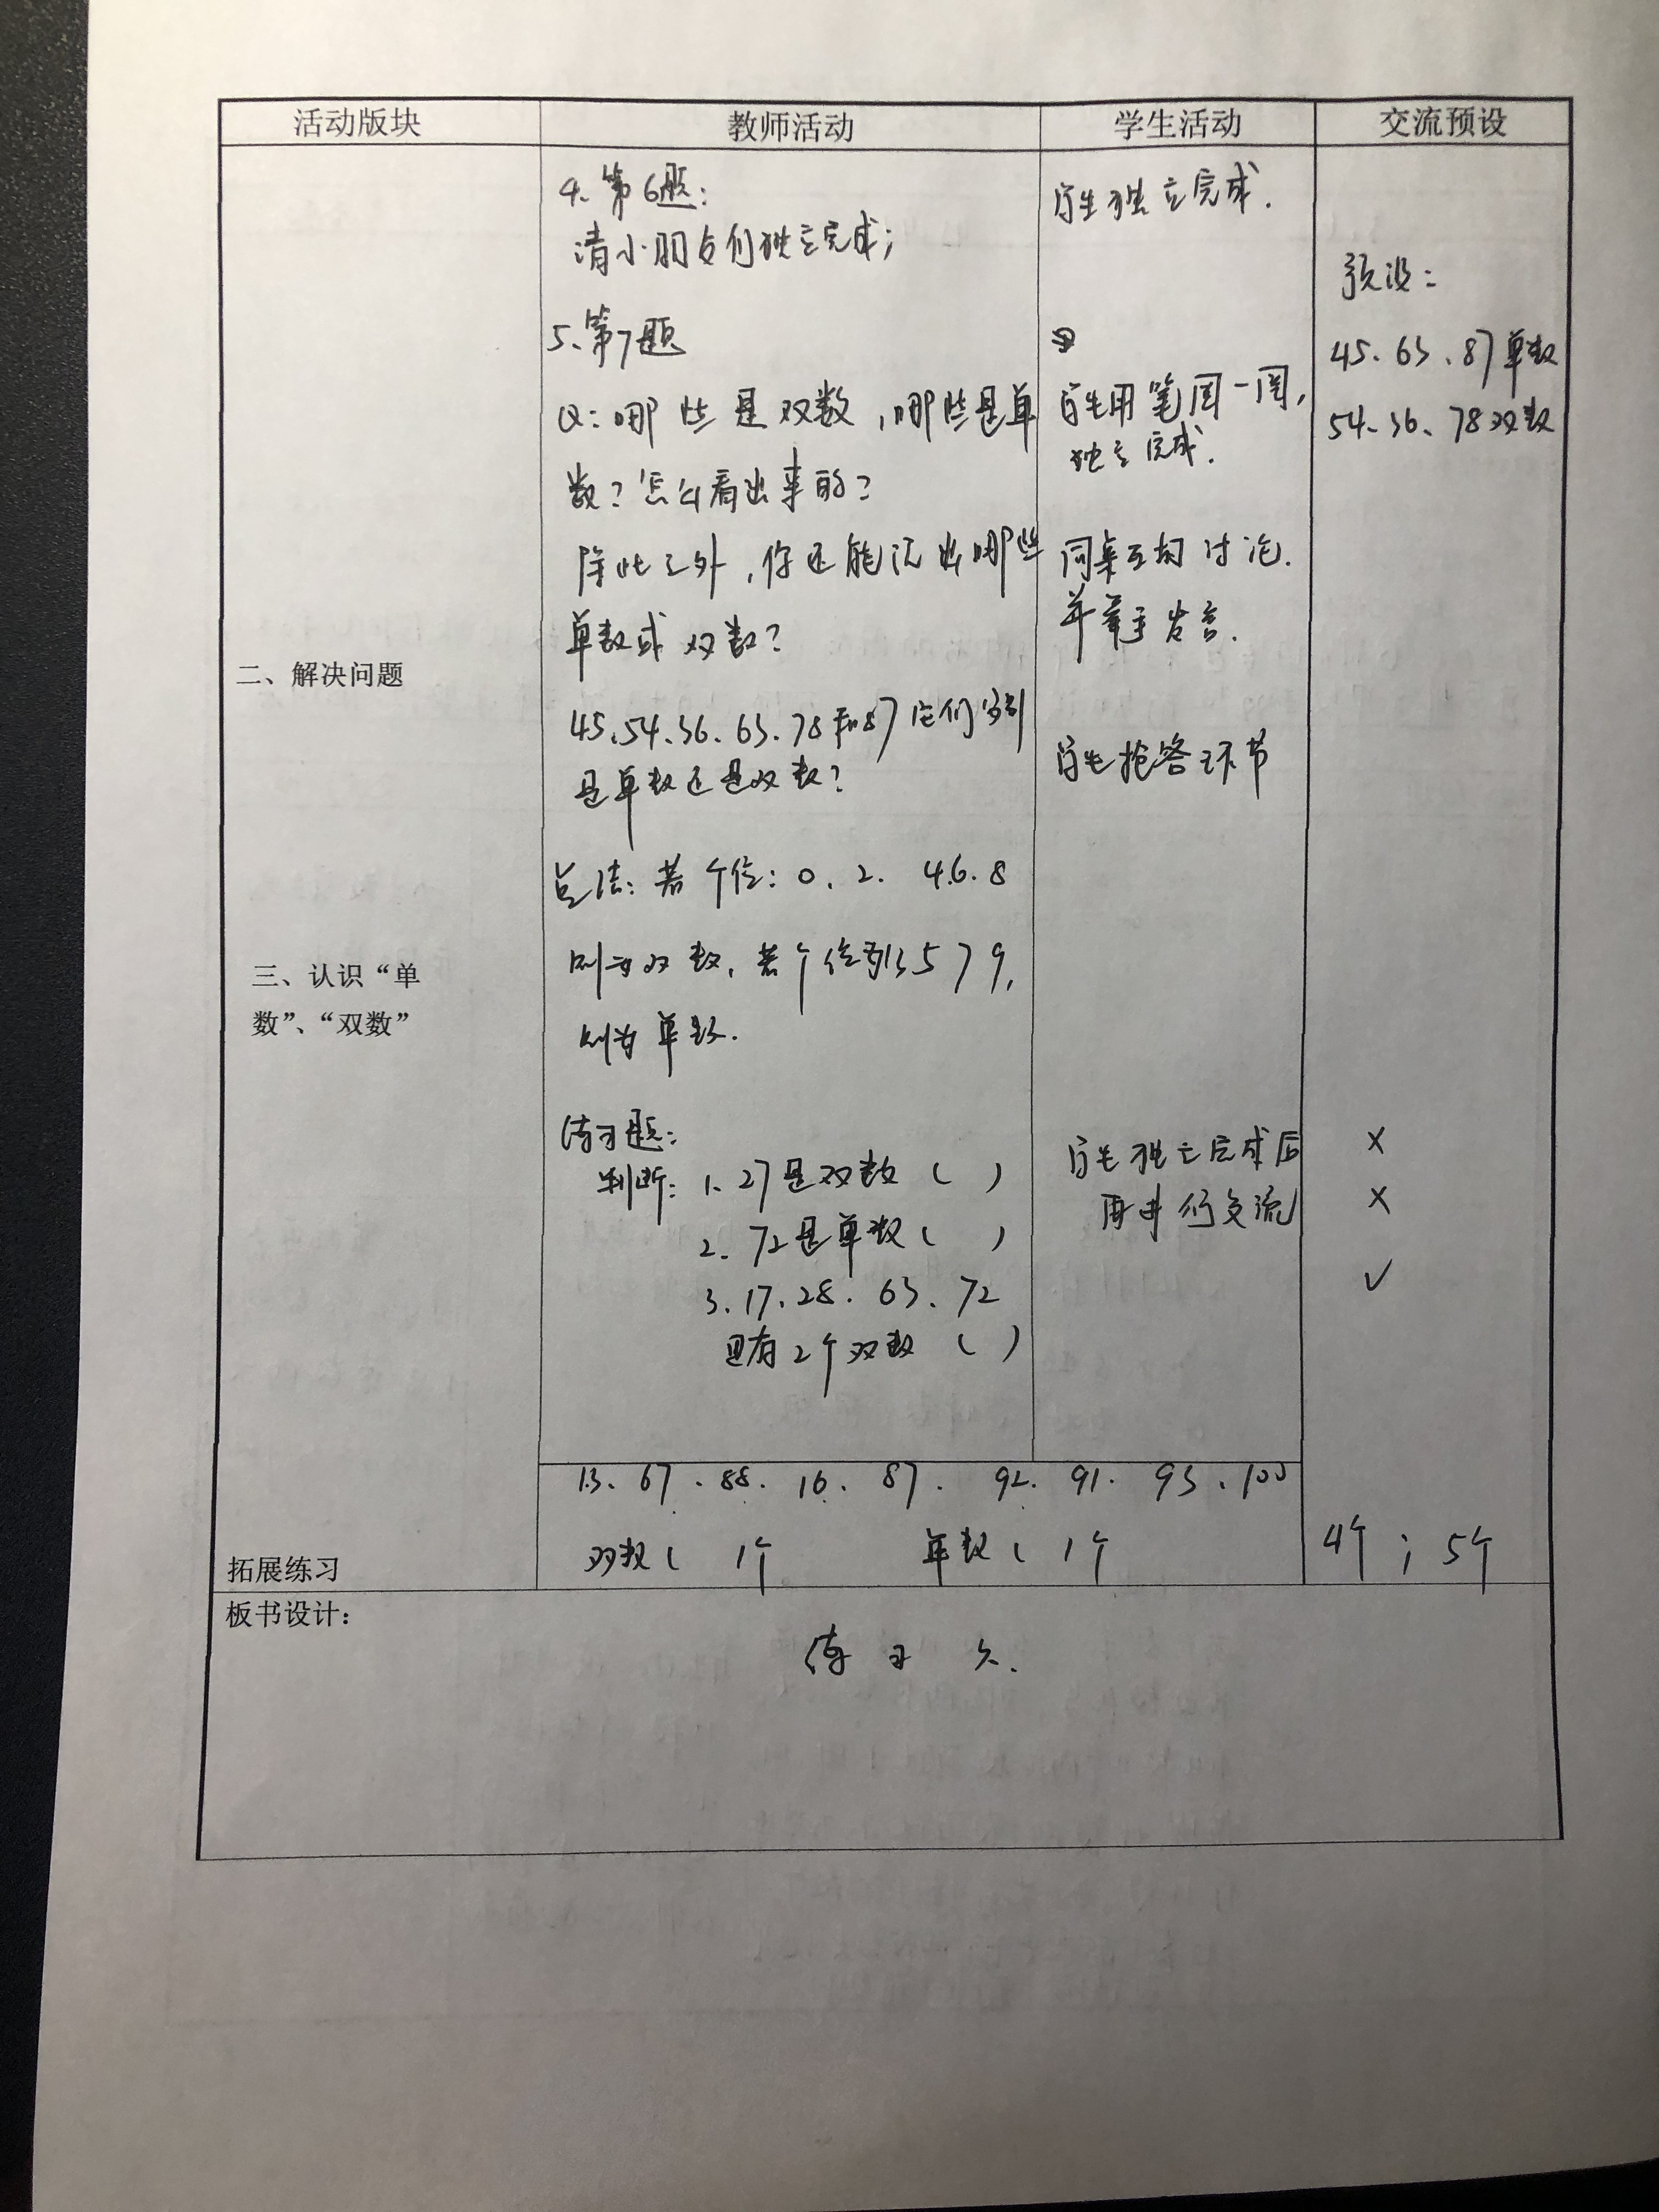 活动版块 教师活动 学生活动 交流预设
4. 第6题:
请小朋友们独立完成;
学生独立完成.
预设:
5、第7题
45、63、87单数
Q: 哪些是双数,哪些是单
学生用笔圈一圈,
54、36、78双数
独立完成.
数?怎么看出来的?
除此之外,你还能说出哪些
同桌互相讨论.
单数或双数?
并举手发言.
二、解决问题
45、54、36、63、78和87它们分别
是单数还是双数?
学生抢答环节
总结: 若个位: 0、2、4、6、8
则为双数,若个位为13579,
三、认识“单
数”、“双数”
则为单数.
练习题:
判断: 1、27是双数 ( )
学生独立完成后
×
再进行交流
×
2、72是单数 ( )
3、17、28、63、72
✓
里有2个双数 ( )
13、67、88、16、87、92、91、93、100
双数( )个 单数( )个
4个; 5个
拓展练习
板书设计:
练习六.